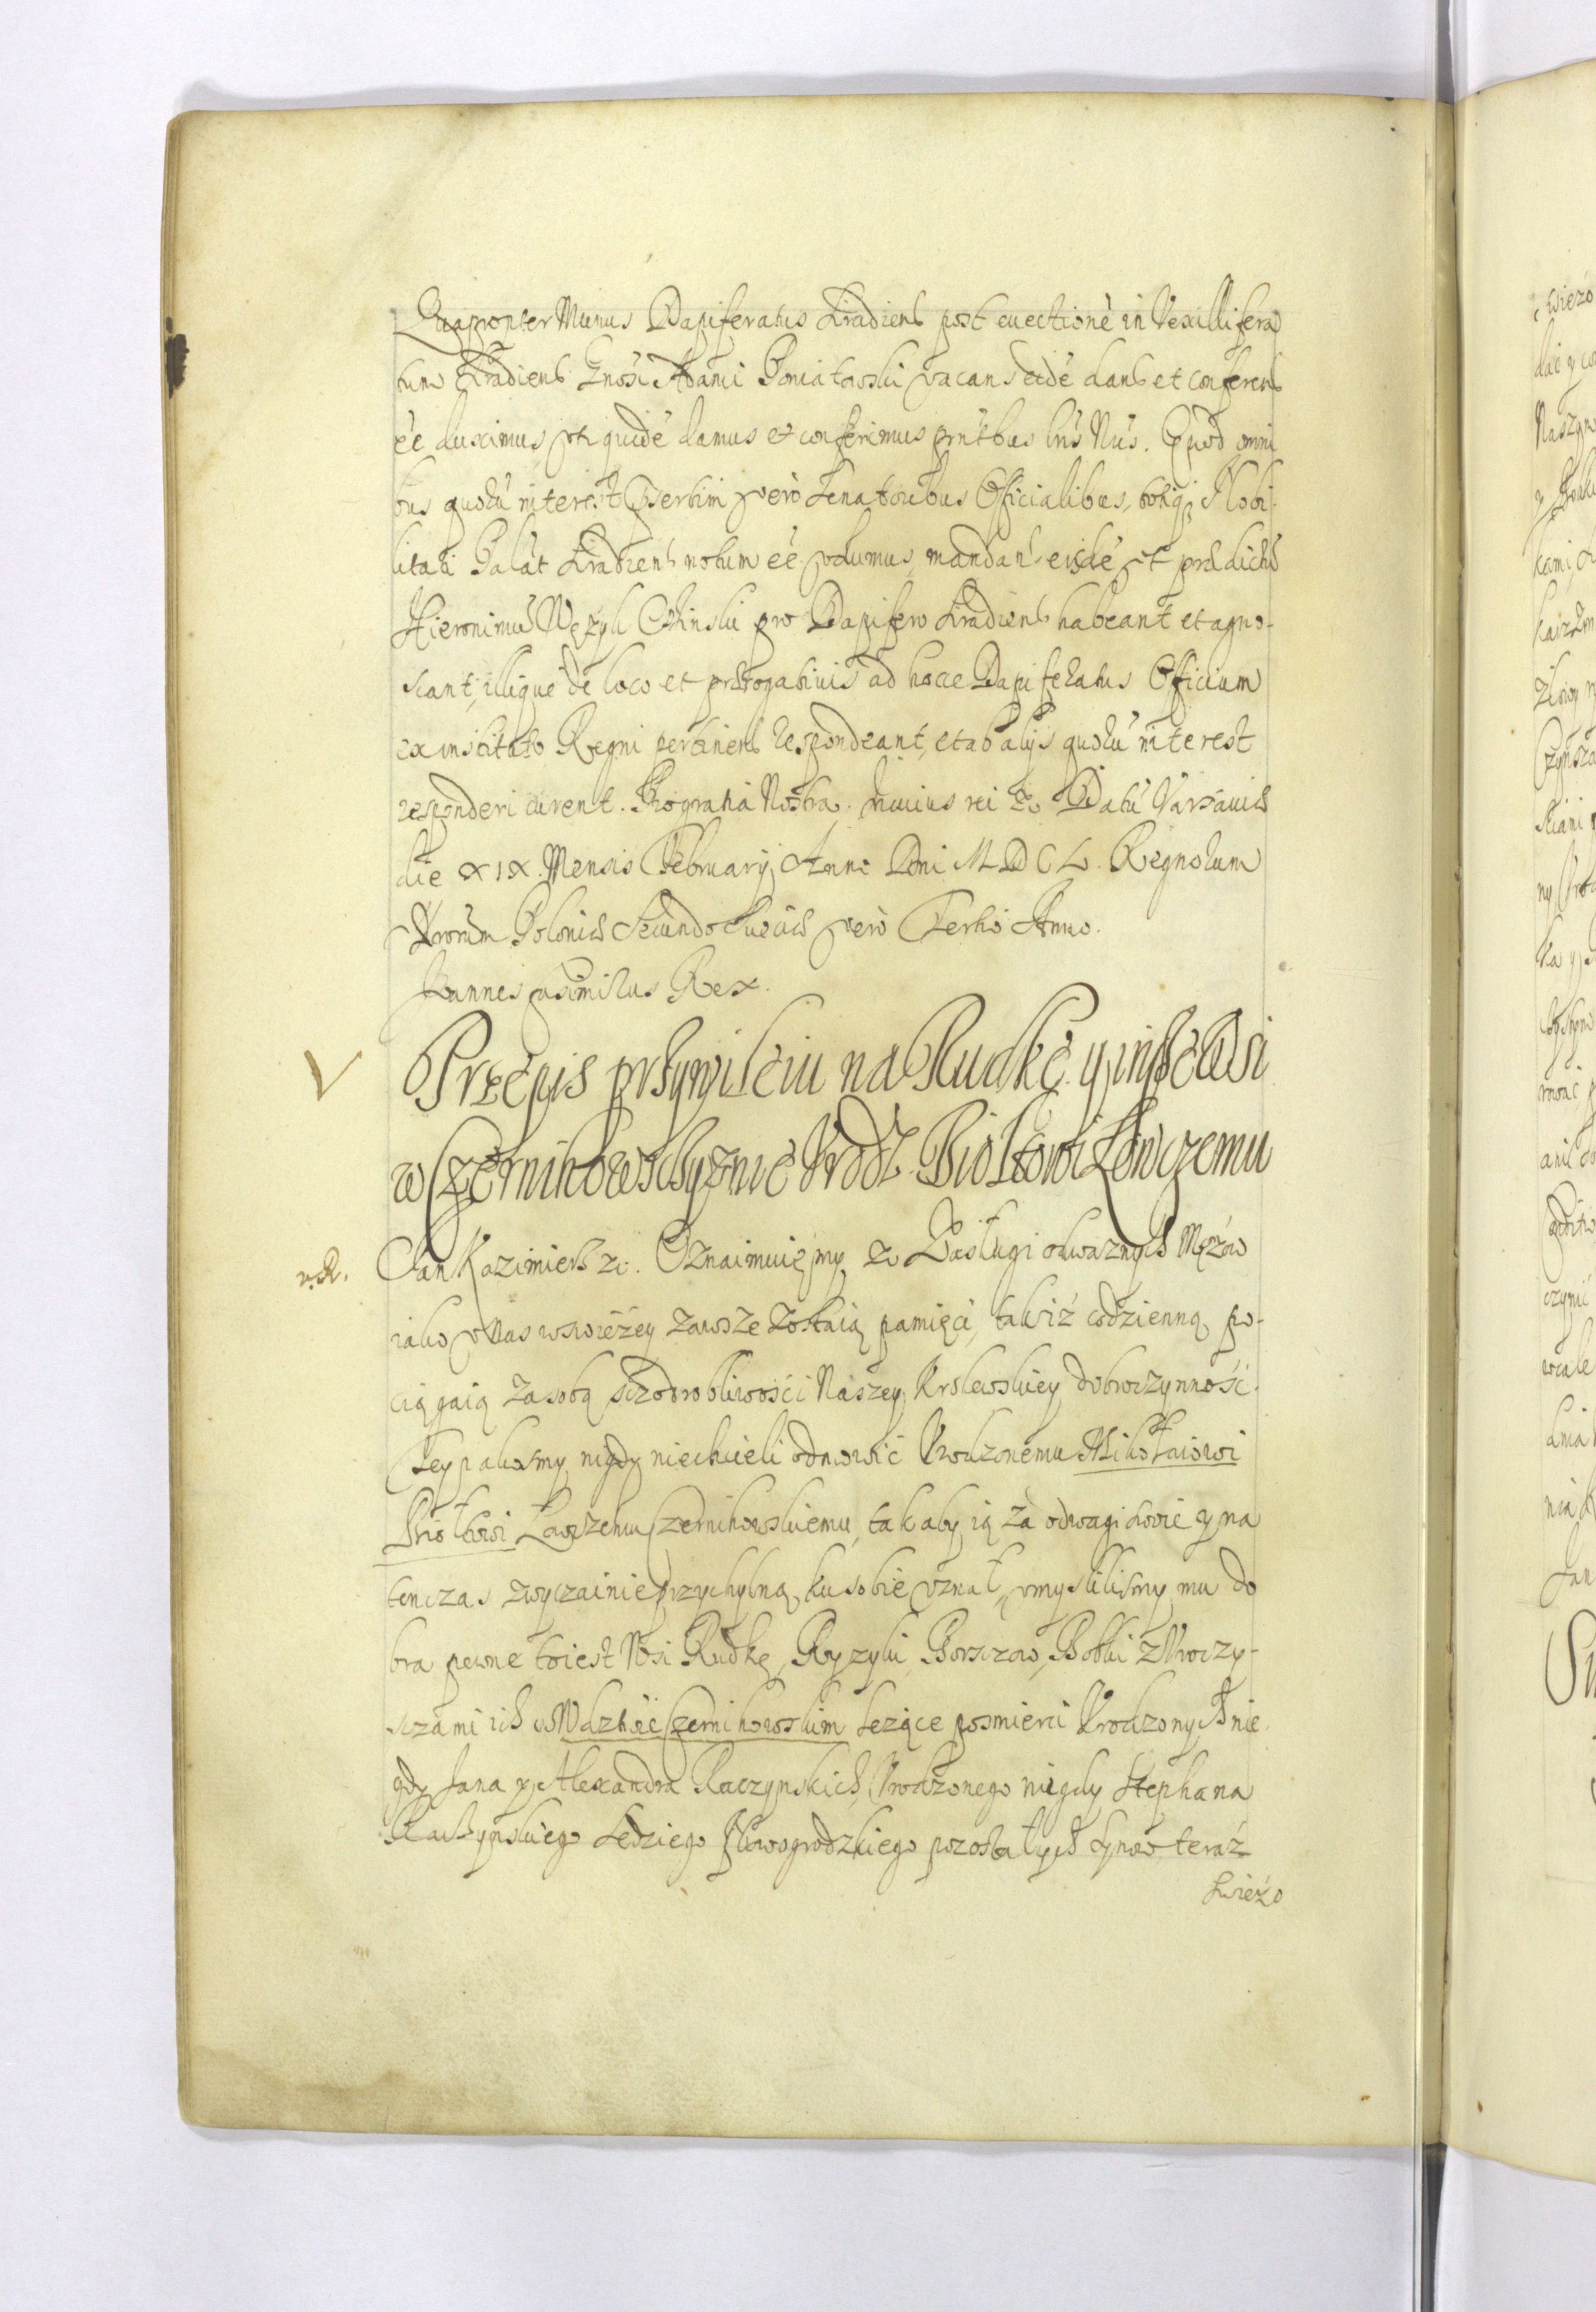 Quapropter Munus Dapiferatus Siradiens post euectionẽ in Vexillifera
tum Siradiens Gnosi Adami Poniatowski vacans eidẽ dand et conferend
ẽe duximus vti quidẽ damus et conferimus pñtbus lris Nris. Quod omni
bus quorũ interest Psertim vero Senatoribus Officialibus, totiqꝫ Nobi-
litati Palat Siradiens notum ẽe volumus, mandan eisdẽ vt prædictũ
Hieronimũ Wężyk Osinski pro Dapifero Siradiens habeant et agno-
scant, illique de loco et prærogatiuis ad hocce Dapiferatus Officium
ex instituto Regni pertinens respondeant, et ab alijs quorũ interest
responderi curent. Pro gratia Nostra. In cuius rei &c Datũ Varsauiæ
die XIX. Mensis February Anno Dni MDCL. Regnorum
Nrorum Poloniæ Secundo Sueciæ vero Tertio Anno.
Joannes Casimirus Rex.
Przepis przywileiu na Rudkę y insze Wsi
w Czernihowsczyznie Vrodz. Piołtowi Łowczemu
v. R. Jan Kazimierz &c. Oznaimuięmy &c Zasługi odważnych Mężow
iako v Nas w swieżey zawsze zostaią pamięci, tak iż codzienną po-
ciągaią za sobą sczodrobliwości Naszey Krolewskiey dobroczynność.
Tey iakosmy nigdy niechcieli odmowić Vrodzonemu Mikołaiowi
Piołtowi Łowczemu Czernihowskiemu, tak aby ią za odwagi swoie y na
tenczas zwyczainie przychylną ku sobie vznał, vmyslilismy mu do
bra pewne to iest Wsi Rudkę, Ryzyki, Borszczow, Bobki z Vroczy-
sczami ich w Wdztwie Czernihowskim lezące po smierci Vrodzonych nie
gdy Jana y Alexandra Raczynskich, Vrodzonego niegdy Stephana
Raczynskiego Sędziego Nowogrodzkiego pozostałych Synow teraz
swieżo